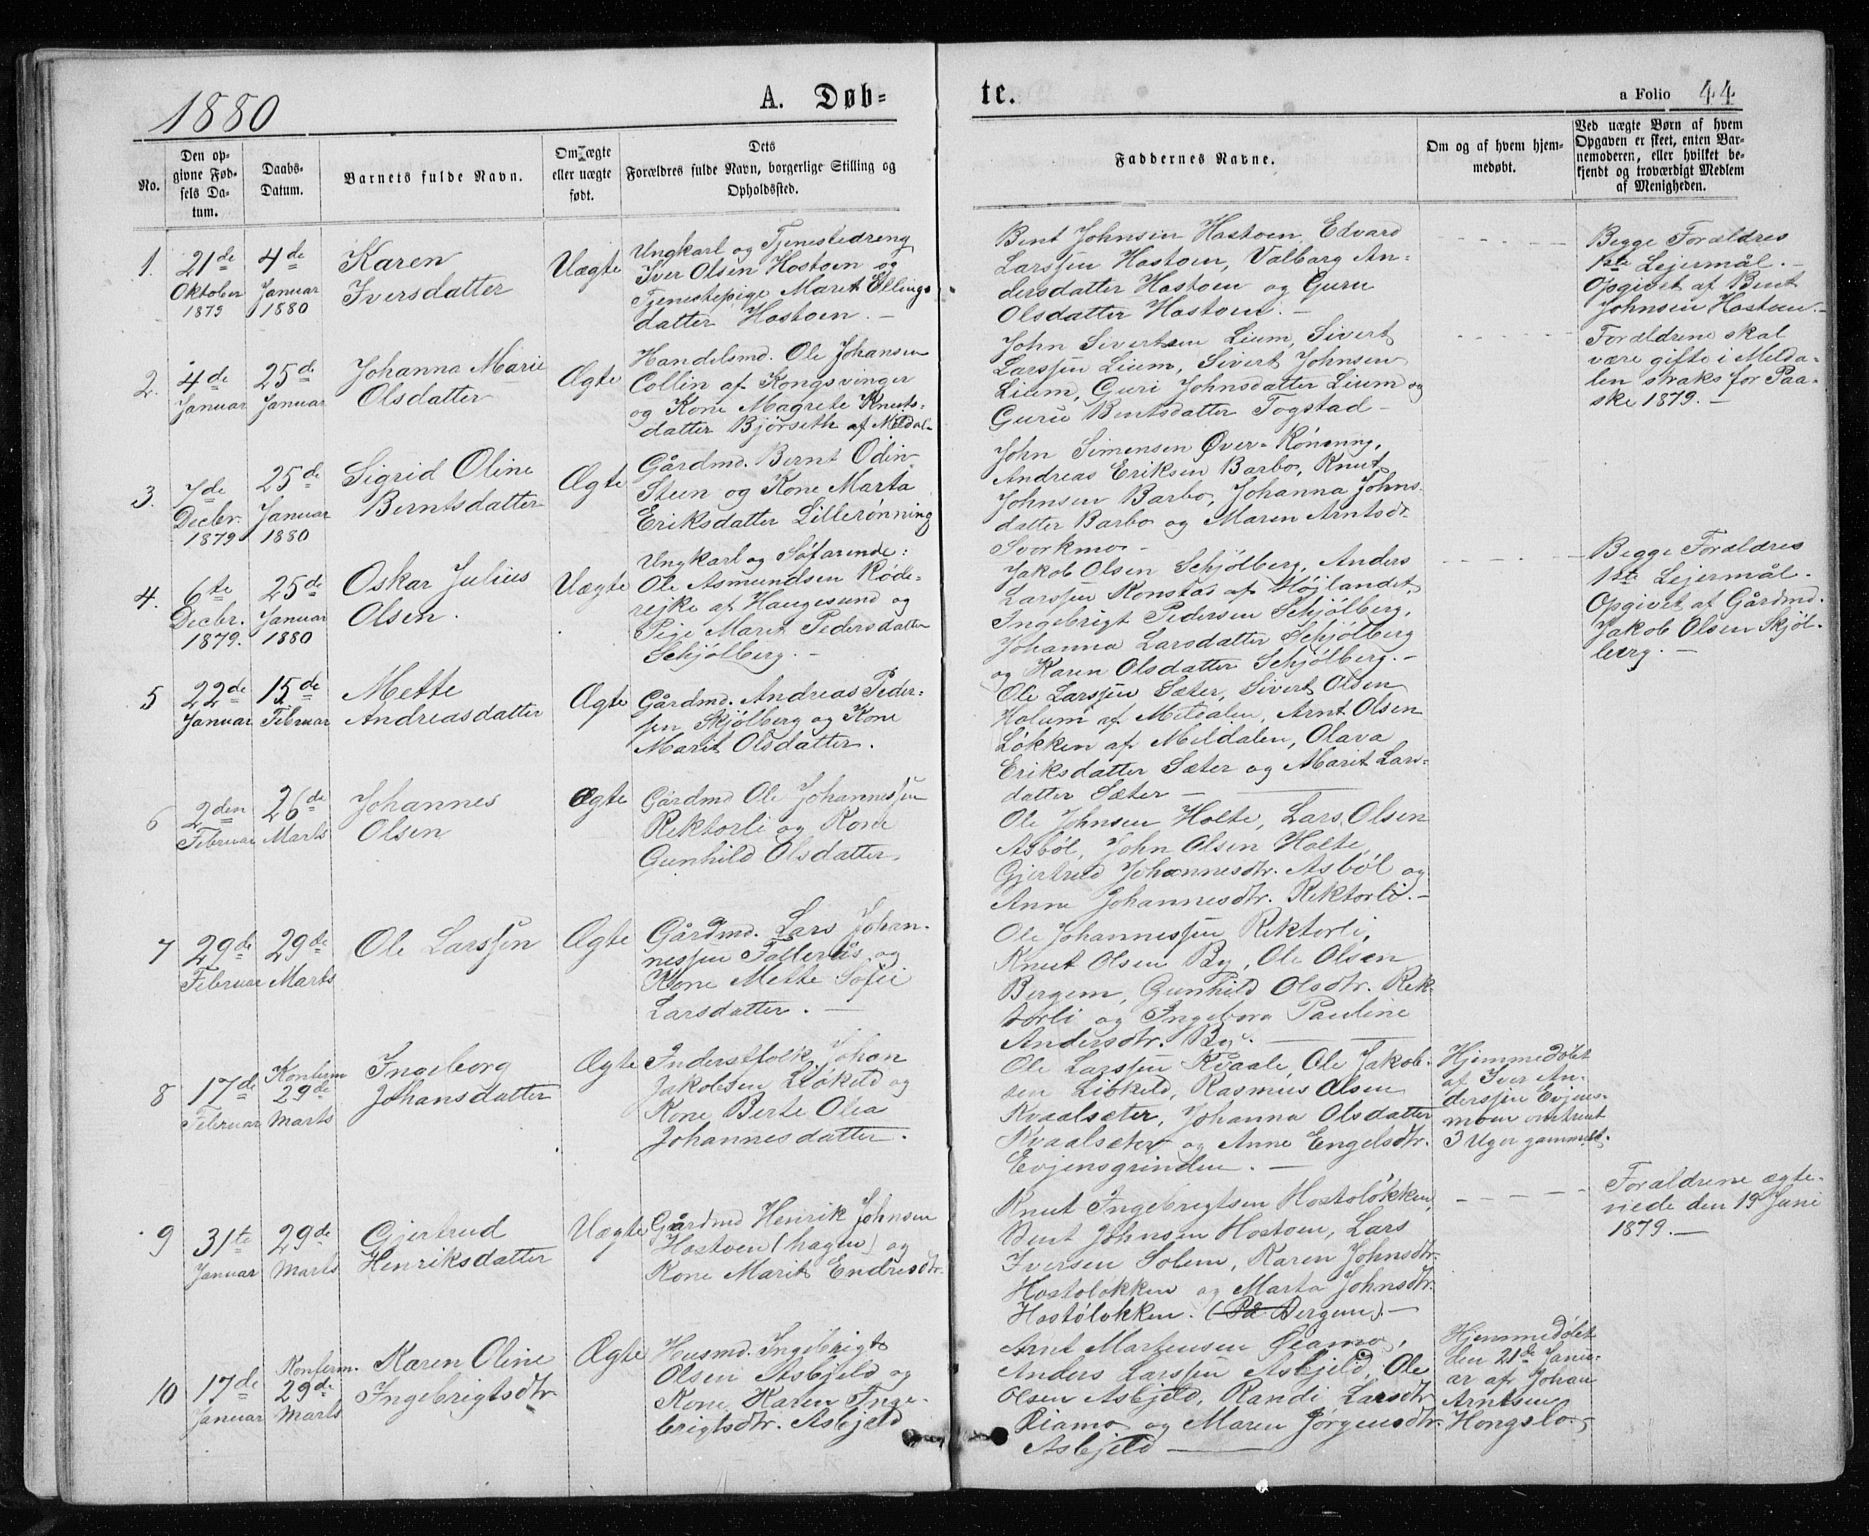 1880
A. Døb-
te.
a Folio 44
No.
Den op-
givne Fød-
sels Da-
tum.
Daabs-
Datum.
Barnets fulde Navn.
Om ægte
eller uægte
født.
Dets
Forældres fulde Navn, borgerlige Stilling og
Opholdssted.
Faddernes Navne.
Om og af hvem hjem-
medøbt.
Ved uægte Børn af hvem
Opgaven er skeet, enten Bar-
nemoderen, eller hvilket be-
kjendt og troværdigt Medlem
af Menigheden.
1.
21de
Oktober
1879
4de
Januar
1880
Karen
Iversdatter
Uægte
Ungkarl og Tjenestedreng
Iver Olsen Hostoen og
Tjenestepige Marit Ellings-
datter Hostoen. –
Bent Johnsen Hostoen, Edvard
Larssen Hostoen, Valborg An-
dersdatter Hostoen og Guru
Olsdatter Hostoen. –
Begge Forældres
1ste Lejermål. –
Opgivet af Bent
Johnsen Hostoen. –
2.
4de
Januar
25de
Januar
Johanna Marie
Olsdatter
Ægte
Handelsmd. Ole Johansen
Collin af Kongsvinger
og Kone Magrete Knuts-
datter Bjørseth af Meldal –
John Sivertsen Lium, Sivert
Larssen Lium, Sivert Johnsen
Lium, Guri Johnsdatter Lium og
Guru Bentsdatter Togstad –
Forældrene skal
være gifte i Melda-
len straks før Paa-
ske 1879. –
3.
7de
Decbr.
1879
25de
Januar
1880
Sigrid Oline
Berntsdatter
Ægte
Gårdmd. Bernt Odin
Steen og Kone Marta
Eriksdatter Lillerønning
John Simensen Øver-Rønning,
Andreas Eriksen Barbo, Knut
Johnsen Barbo, Johanna Johns-
datter Barbo og Maren Arntsdtr
Svorkmo –
4.
6te
Decbr.
1879.
25de
Januar
1880
Oskar Julius
Olsen.
Uægte
Ungkarl og Søfarende:
Ole Asmundsen Røde-
rejke af Haugesund og
Pige Marit Pedersdatter
Schjølberg. –
Jakob Olsen Schjølberg, Anders
Larssen Konstad af Højlandet,
Ingebrigt Pedersen Schjølberg,
Johanna Larsdatter Schjølberg
og Karen Olsdatter Schjølberg. –
Begge Forældres
1ste Lejermål.
Opgivet af Gårdmd.
Jakob Olsen Skjøl-
berg. –
5
22de
Januar
15de
Februar
Mette
Andreasdatter
Ægte
Gårdmd. Andreas Peder-
sen Skjølberg og Kone
Marit Olsdatter.
Ole Larssen Sæter, Sivert Olsen
Holum af Meldalen, Arnt Olsen
Løkken af Meldalen, Olava
Eriksdatter Sæter og Marit Lars-
datter Sæter –
6
2den
Februar
26de
Marts
Johannes
Olsen
Ægte
Gårdmd Ole Johannessen
Rektorli og Kone
Gunhild Olsdatter.
Ole Johnsen Holte, Lars Olsen
Asbøl, John Olsen Holte,
Gjertrud Johannesdtr. Asbøl og
Anne Johannesdtr. Rektorli. –
7
29de
Februar
29de
Marts
Ole Larssen
Ægte
Gårdmd. Lars Johan-
nessen og
Kone Mette Sofie
Larsdatter. –
Ole Johannessen Rektorli,
Knut Olsen By, Ole Olsen
Bergem, Gunhild Olsdtr. Rek-
torli og Ingeborg Pauline
Andersdtr. By. –
8
17de
Februar
Konferm
29de
Marts
Ingeborg
Johansdatter
Ægte
Inderstfolk Johan
Jakobsen Liøkeld og
Kone Berte Olea
Johannesdatter.
Ole Larssen Kvaale, Ole Jakob-
sen Liøkeld, Rasmus Olsen
Kvaalsæter, Johanna Olsdatter
Kvaalsæter og Anne Engelsdtr.
Evjensgrinden. –
Hjemmedøbt
af Iver An-
derssen Evjens-
moen omtrent
3 Uger gammelt.
9
31te
Januar
29de
Marts
Gjertrud
Henriksdatter
Uægte
Gårdmd Henrik Johnsen
Hostoen (hagen) og
Kone Marit Endresdtr.
Knut Ingebrigtsen Hostoløkken,
Bent Johnsen Hostoen, Lars
Iversen Solem, Karen Johnsdtr.
Hostoløkken og Marta Johnsdtr.
Hostoløkken. (På Bergem) –
Forældrene ægte-
viede den 19 Juni
1879. –
10
17de
Januar
Konferm.
29de
Marts
Karen Oline
Ingebrigtsdtr
Ægte
Husmd. Ingebrigt
Olsen Asbjeld og
Kone Karen Inge-
brigtsdtr. Asbjeld
Arnt Martensen Øiamo,
Anders Larssen Asbjeld, Ole
Olsen Asbjeld, Randi Larsdtr
Øiamo og Maren Jørgensdtr.
Asbjeld –
Hjemmedøbt
den 21de Janu-
ar af Johan
Arntsen
Hongslo. –